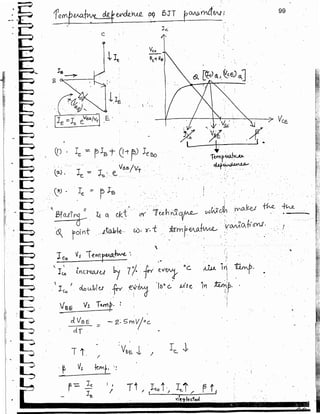 Temperature dependence of BJT parameters:
99
C
Ic
Vcc
Rc+RE
Ic
Q [(Ic)Q, (VCE)Q]
IB
B
r(VBE)
IE
Ic = Io e^VBE/VT
E
VCE
Ico
VBE
β
Temperature
dependence
(1). Ic = βIB + (1+β) ICBO
(2). Ic = Io . e^VBE/VT
(3). Ic = β IB
"Biasing" is a ckt or Technique which makes the the
Q point stable w.r.t temperature variations.
Ico Vs Temperature :
'Ico increases by 7% for every °C rise in temp.
'Ico' doubles for every 10°C rise in temp.
VBE Vs Temp. :
dVBE / dT = -2.5mV/°c
T↑ , VBE ↓ , Ic ↓
β Vs temp. :
β = Ic / IB ; T↑, Ico↑, Ic↑, β↑,
neglected